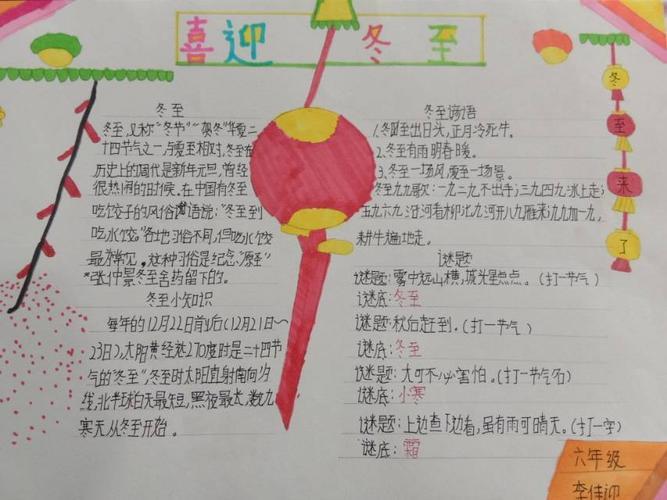 喜迎冬至
冬至
冬至,又称"冬节""贺冬"华夏二
十四节气之一,与夏至相对,冬至在
历史上的周代是新年元旦,曾经
很热闹的时候。在中国有冬至
吃饺子的风俗 谚语说:"冬至到
吃水饺。"各地习俗不同,但吃水饺
最常见。这种习俗是纪念
"张仲景冬至舍药留下的。
冬至小知识
每年的12月22日前后(12月21~
23日),太阳黄经达270度时是二十四节
气的"冬至",冬至时太阳直射南回归
线,北半球白天最短,黑夜最长,数九
寒天从冬至开始。
冬至谚语
1.冬至出日头,正月冷死牛。
2.冬至有雨明春暖。
3.冬至一场风,夏至一场暴。
冬至九九歌:一九二九不出手;三九四九冰上走;
五九六九沿河看柳;七九河开八九雁来;九九加一九,
耕牛遍地走。
谜题
谜题:雾中远山横,城光星点点。(打一节气)
谜底:冬至
谜题:秋后赶到.(打一节气)
谜底:冬至
谜题:大可不必害怕。(打一节气名)
谜底:小寒
谜题:上边查下边看,虽有雨可晴天。(打一字)
谜底:霜
冬至来了
六年级
李佳迎